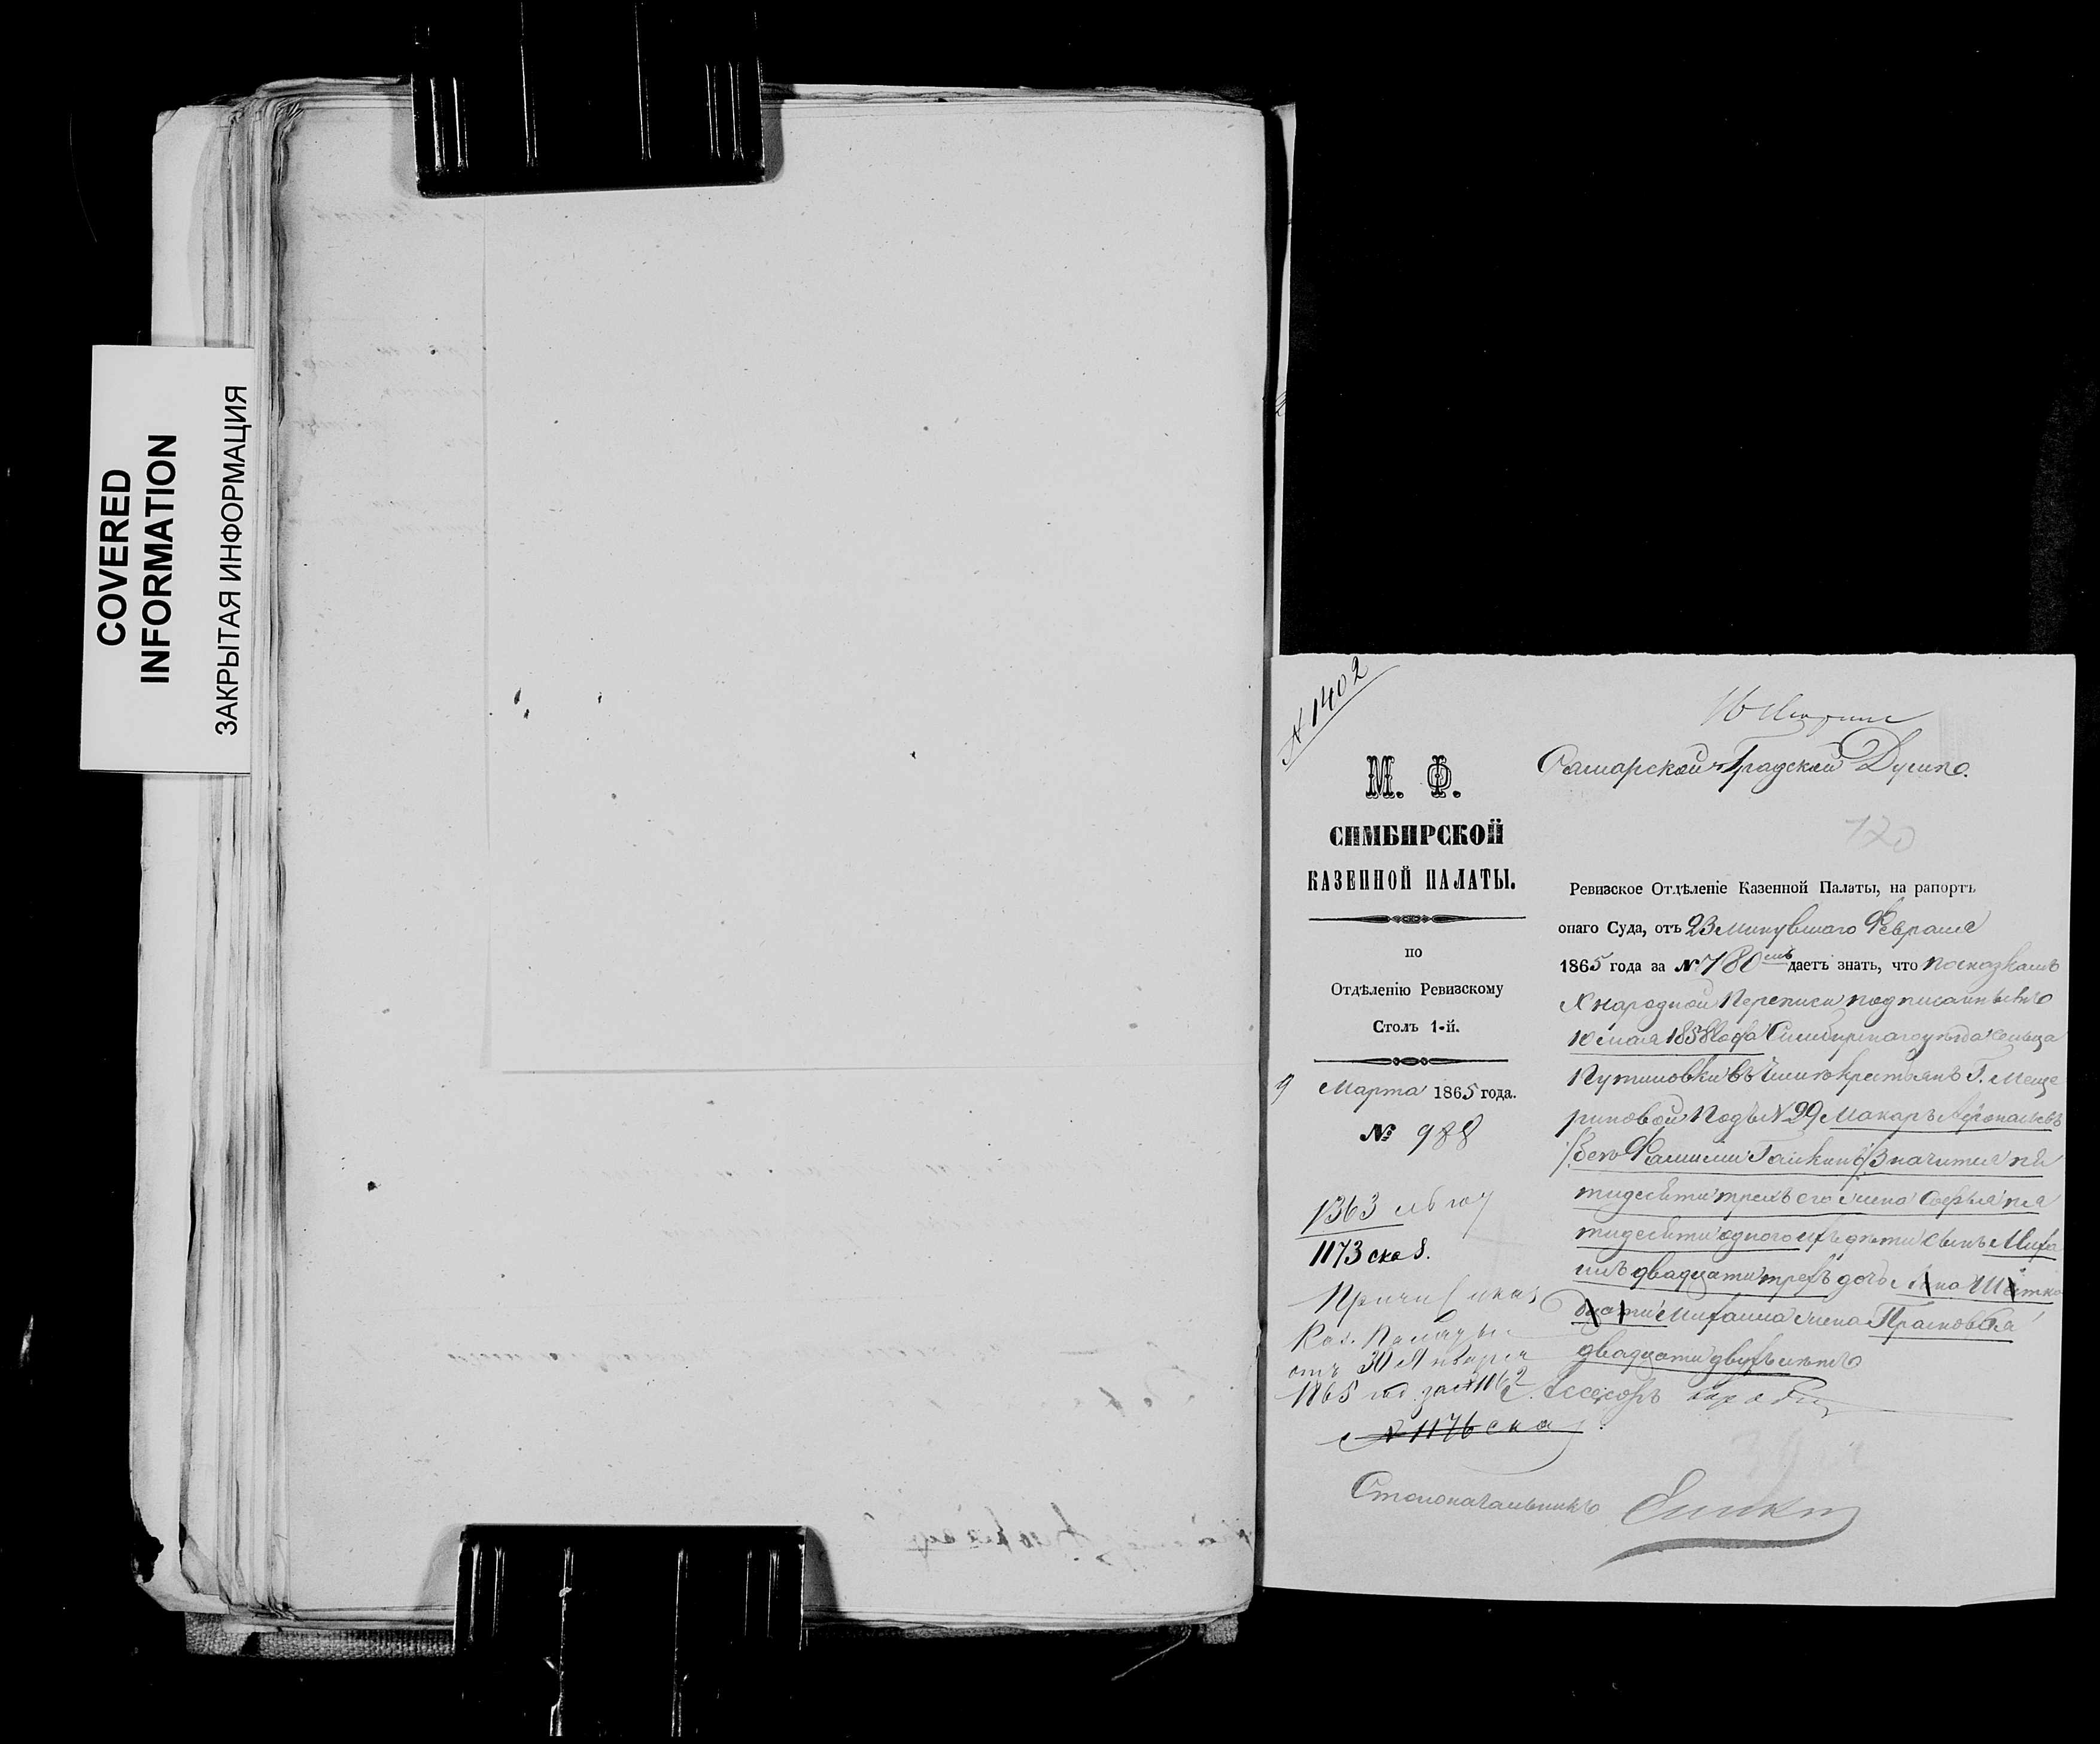 COVERED
INFORMATION
ЗАКРЫТАЯ ИНФОРМАЦИЯ
№ 1402
М. Ф.
СИМБИРСКОЙ
КАЗЕННОЙ ПАЛАТЫ.
по
Отдѣленію Ревизскому
Столъ 1-й.
9 Марта 1865 года.
№ 988
1363
1173 ска 8.
Каз. Палаты
отъ 30 Января
1865 год. за № 1162
№ 1176 ска
16 Марта
Самарской Градской Думѣ.
120
Ревизское Отдѣленіе Казенной Палаты, на рапортъ
онаго Суда, отъ 23 минувшаго Февраля
1865 года за № 780 даетъ знать, что по сказкамъ
X народной Переписи подписаннымъ
10 мая 1858 года Симбирскаго уѣзда сельца
Путиловки въ числѣ крестьянъ Г. Меще
риновой подъ № 29 Макаръ Афонасьевъ
/безъ Фамиліи Галкинъ/ Значится пя
тидесяти трехъ его жена Софья пя
тидесяти одного ихъ дѣти сынъ Миха
илъ двадцати трехъ дочь
Михаила жена Прасковья
двадцати двухъ лѣтъ
Ассесоръ
Столоначальникъ